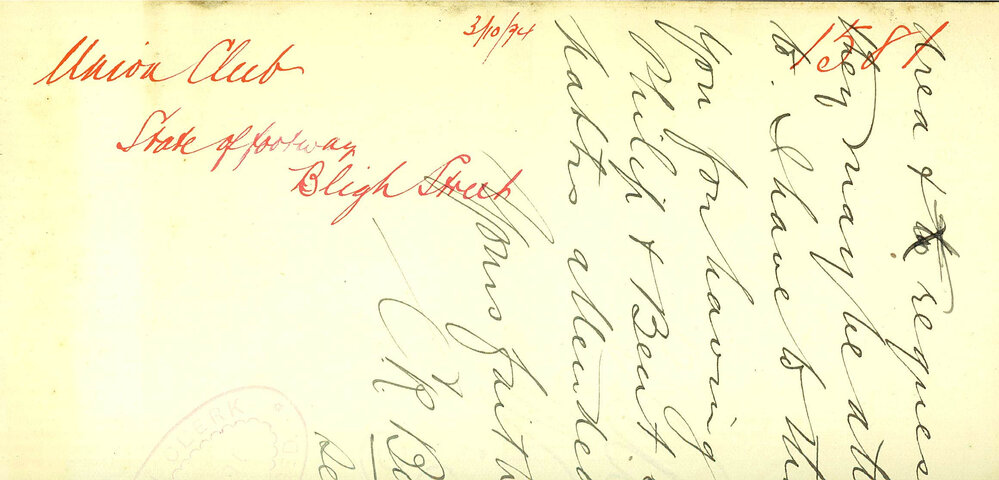 3/10/94
1581
Union Club
State of footway
Bligh Street
Area & to reques
they may be att
to. I have to th
you for having
Philip & Bent
paths attended
Yours faith
CLERK